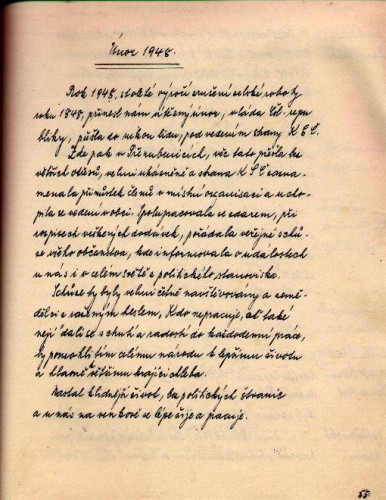 Únor 1948.
Rok 1948, stoleté výročí zrušení selské roboty
roku 1848, přinesl nám vítězný únor, vláda Čsl. repu
bliky, přešla do rukou lidu, pod vedením strany K S Č.
Zde pak v, věc tato přešla bez
větších otřesů, velmi ukázněně a strana K S Č zazna-
menala přírůstek členů v místní organisaci a ucho-
pila se vedení v obci. Spolupracovala se zdarem, při
rozpisech veškerých dodávek, pořádala veřejné schů-
ze všeho občanstva, kde informovala o událostech
u nás i v celém světě s politického stanoviska.
Schůze ty byly velmi četně navštěvovány a země-
dělci s rázným heslem, Kdo nepracuje, ať také
nejí dali se s chutí a radostí do každodenní práce,
by pomohli tím celému národu k lepšímu životu
a hlavně většímu krajíci chleba.
Nastal klidnější život, bez politických štvanic
a u nás na venkově se lépe žije a pracuje.
55